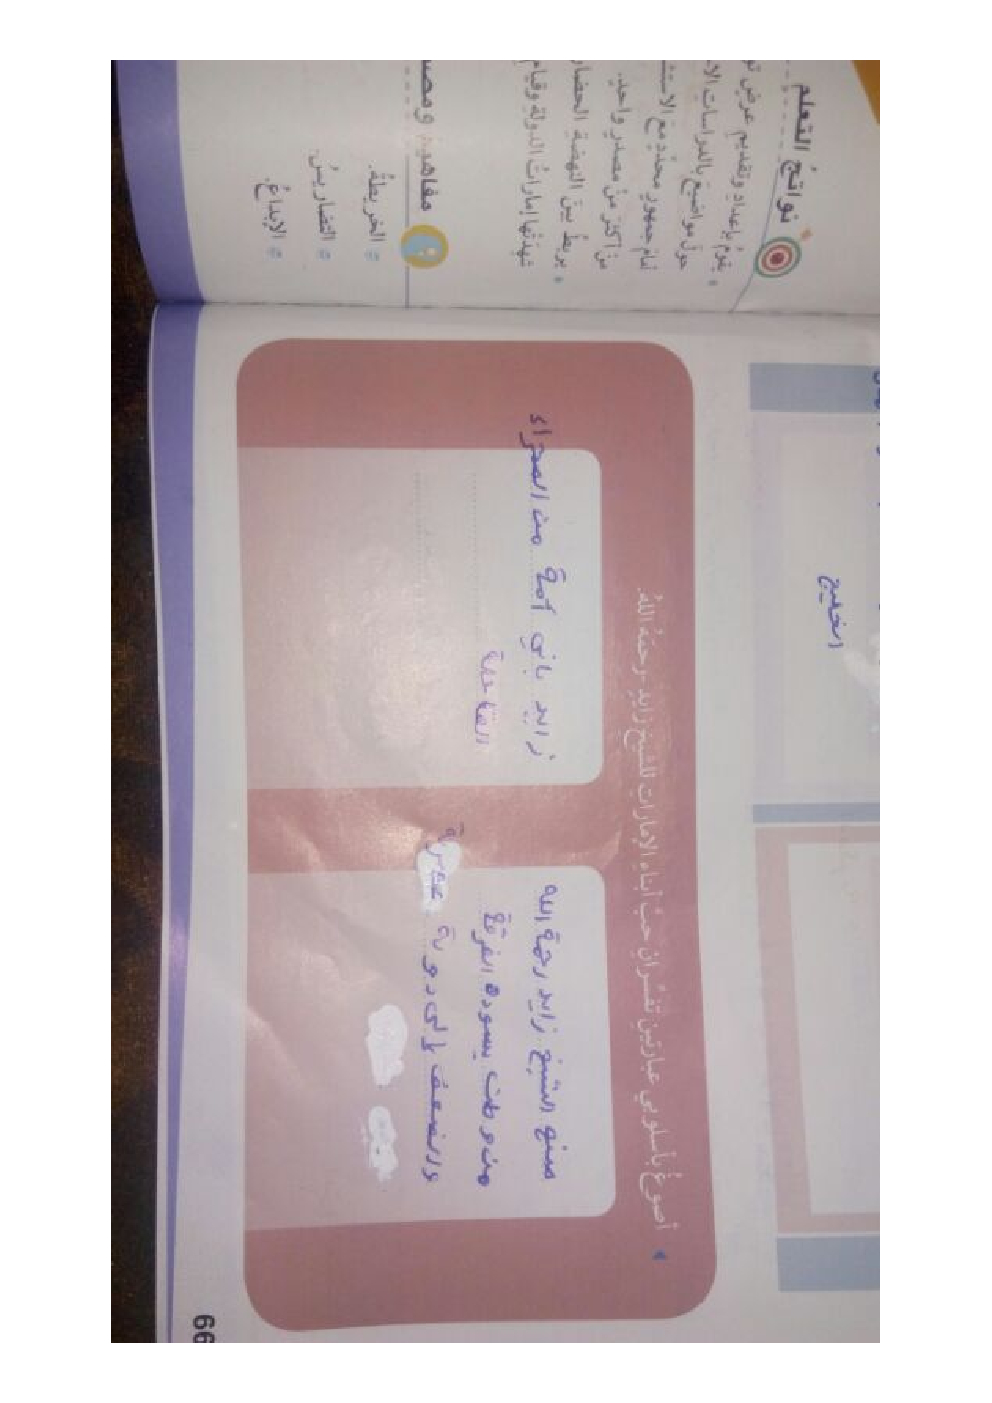 أصوغ بأسلوبي عبارتين تفسران حب أبناء الإمارات للشيخ زايد - رحمه الله.
صنع الشيخ زايد رحمة الله
من وطن يسوده الفرقة
والضعف إلى دولة عصرية
زايد باني أمة من الصحراء
القاحلة
66
نواتج التعلم
يقوم بإعداد وتقديم عرض
حول مواضيع بالدراسات
أمام جمهور محدد مع
من أكثر من مصدر واحد.
يربط بين النهضة
شهدتها إمارات الدولة وقيام
مفاهيم
الخريطة.
التضاريس.
الإبداع.